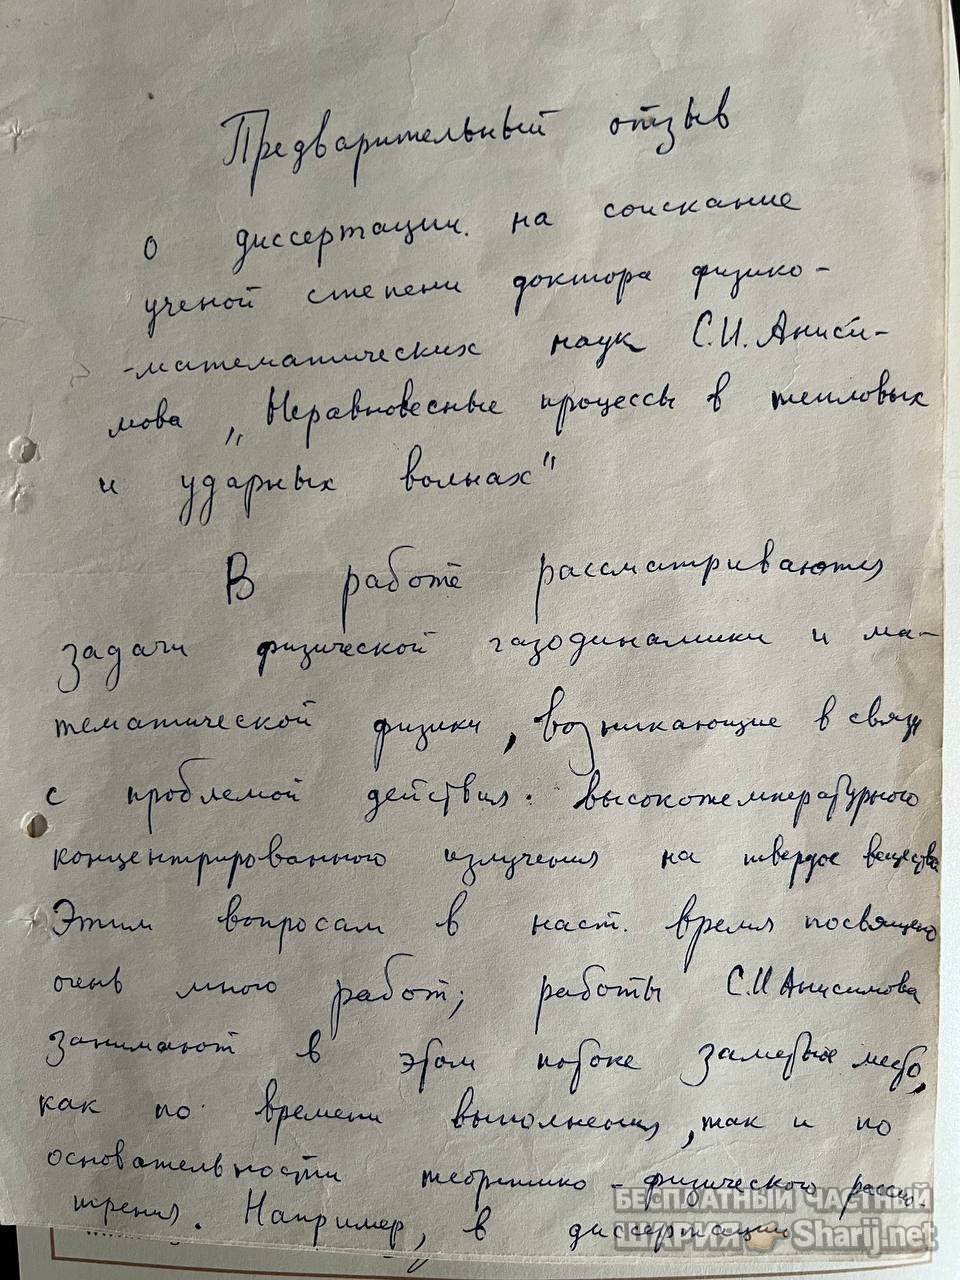 Предварительный отзыв
о диссертации на соискание
ученой степени доктора физико-
-математических наук С.И. Аниси-
мова „Неравновесные процессы в тепловых
и ударных волнах"
В работе рассматриваются
задачи физической газодинамики и ма-
тематической физики, возникающие в связи
с проблемой действия высокотемпературного
концентрированного излучения на твердое вещество
Этим вопросам в наст. время посвящено
очень много работ; работы С.И Анисимова
занимают в этом потоке заметное место,
как по времени выполнения, так и по
основательности теоретико-физического рассмо-
трения. Например, в диссертации
БЕСПЛАТНЫЙ ЧАСТНЫЙ
ШАРИЯ Sharij.net